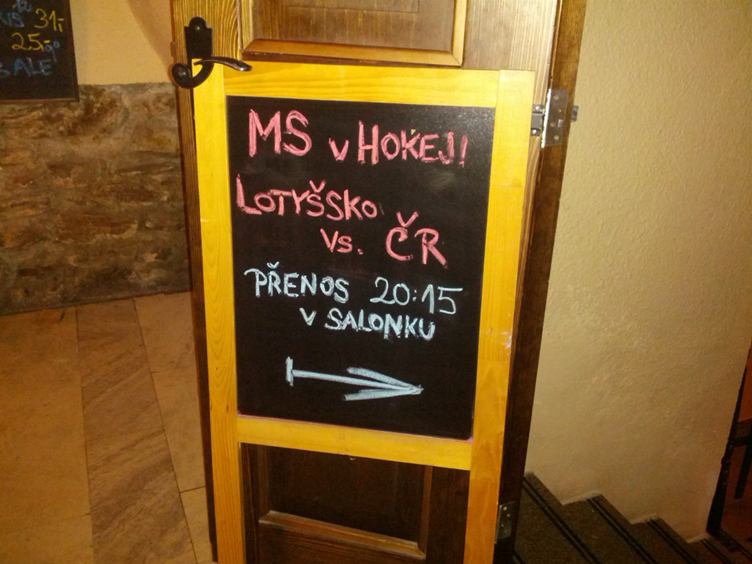 31,-
25,-
ALE
MS v HOKEJI
LOTYŠSKO
vs. ČR
PŘENOS 20:15
V SALONKU